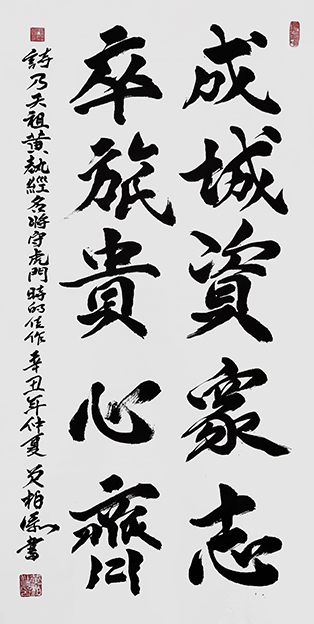 成城資眾志
卒旅貴心齊
詩乃天祖黃經名將守虎門時的佳作 辛丑年仲夏 柏書